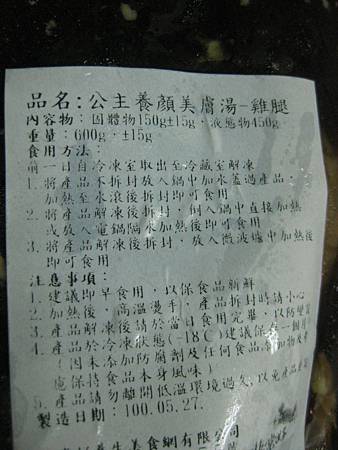 品名:公主養顏美膚湯-雞腿
內容物:固體物150g±15g,液態物450g
重量:600g,±15g
食用方法:
前一日自冷凍室取出至冷藏室解凍
1. 將產品不拆封放入鍋中加水蓋過產品,
加熱至水滾後拆封即可食用
2. 將產品解凍後拆封,倒入鍋中直接加熱
或放入電鍋隔水加熱後即可食用
3. 將產品解凍後拆封,放入微波爐中加熱後
即可食用
注意事項:
1. 建議即早食用,以保食品新鮮
2. 加熱後,高溫燙手,產品拆封時請小心
3. 產品解凍後請於當日食用完畢,以防變
4. 產品於冷凍狀態(-18C)建議保存一個月
(因未添加防腐劑及任何食品添加物及
處保持食品本身風味)
5. 產品請勿離開低溫環境過久,以免產品
製造日期:100.05.27.
養生美食網有限公司